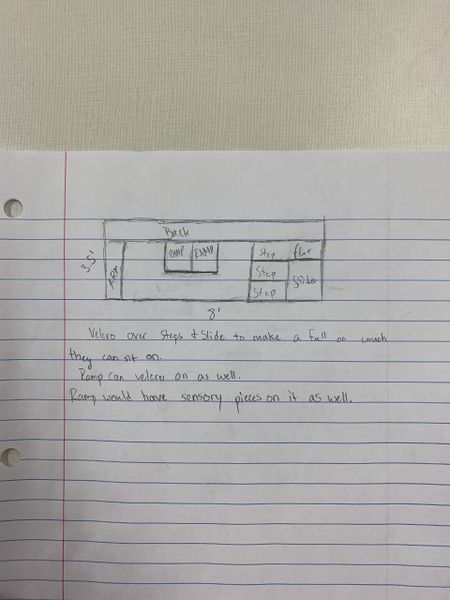 Back
RAMP RAMP
Step flat
3.5'
Step
Slide
Step
8'
Velcro over Steps & Slide to make a full on couch
they can sit on.
Ramp can velcro on as well.
Ramp would have sensory pieces on it as well.